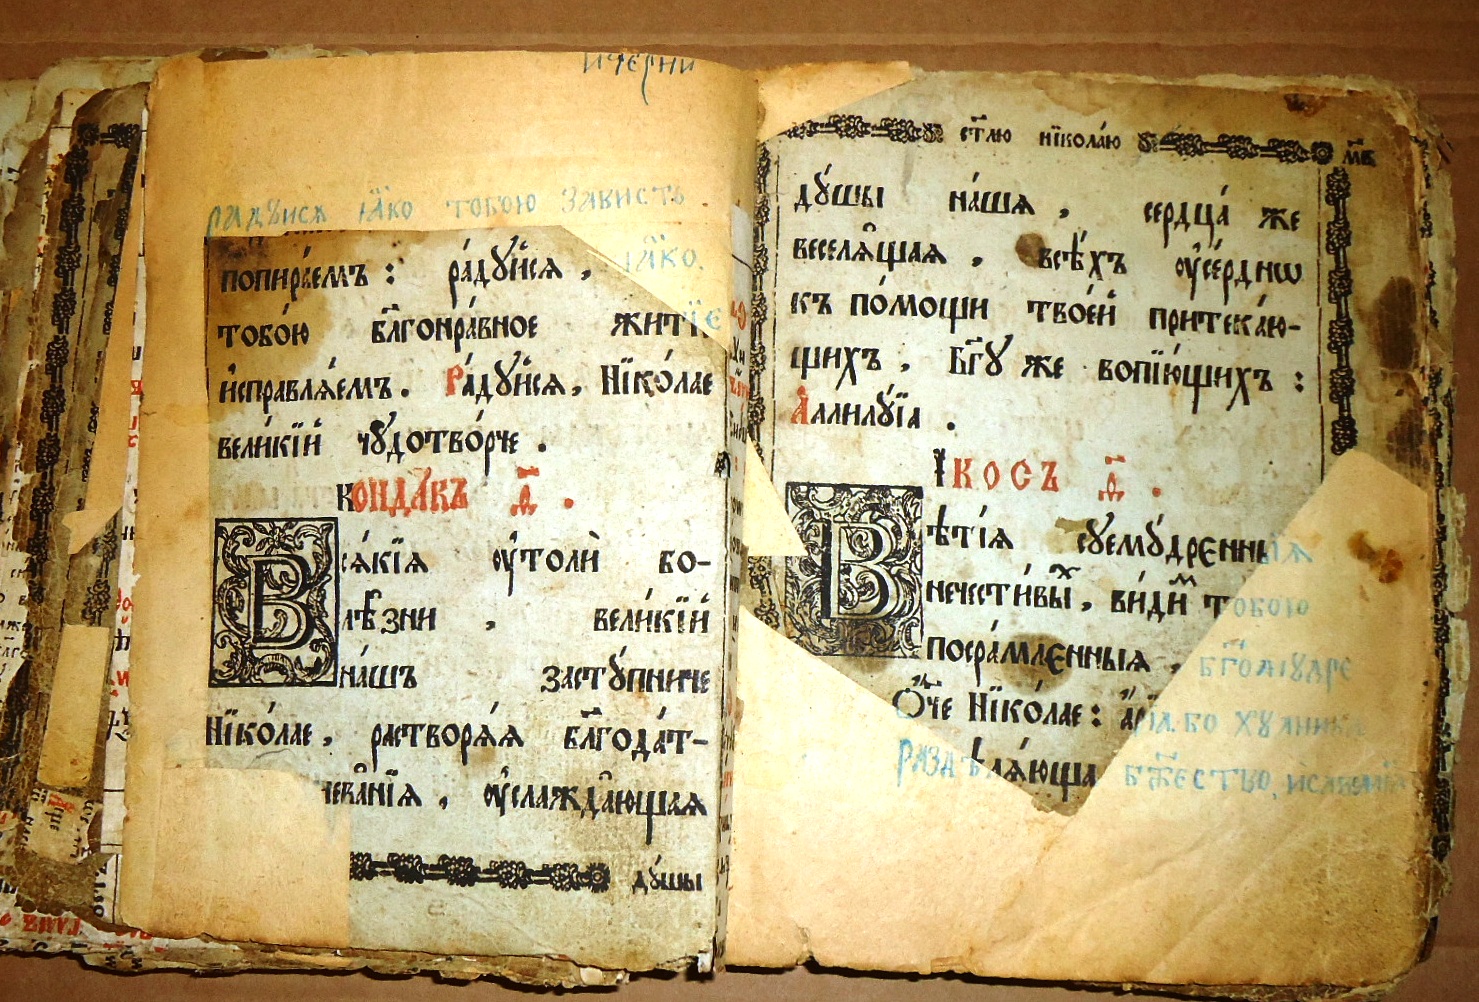 ичерни
радуися ꙗ҆ко тобою зависть
попира́емъ : ра́дꙋйсѧ , ꙗ҆́ко
тобо́ю бл҃гонра́вное житїе
и҆справлѧ́емъ . Ра́дꙋйсѧ , Нїко́лае
вели́кїй чꙋдотво́рче .
Конда́къ .
Всѧ́кїѧ ᲂу҆толѝ бо-
лѣ̑зни , вели́кїй
на́шъ застꙋ́пниче
Нїко́лае , растворѧ́ѧ бл҃года́т-
ᲂу҆слажда́ющаѧ
дꙋ́шы
ст҃лю нїкола́ю м҃в
дꙋ́шы на́шѧ , сердца́ же
веселѧ́щаѧ , всѣ́хъ ᲂу҆се́рднѡ
къ по́мощи твое́й притека́ю-
щихъ , Бг҃ꙋ же вопїю́щихъ :
Аллилꙋ́їа .
І҆́косъ .
Вѣ̑тїѧ сꙋемꙋ́дренныѧ
нечести́выхъ , ви́димъ тобою
посра́мленныѧ , бг҃омꙋдре
Ѻ҆́ч҃е Нїко́лае : а҆́рїа бо хꙋлника
раздѣлѧ́юща бж҃ество,